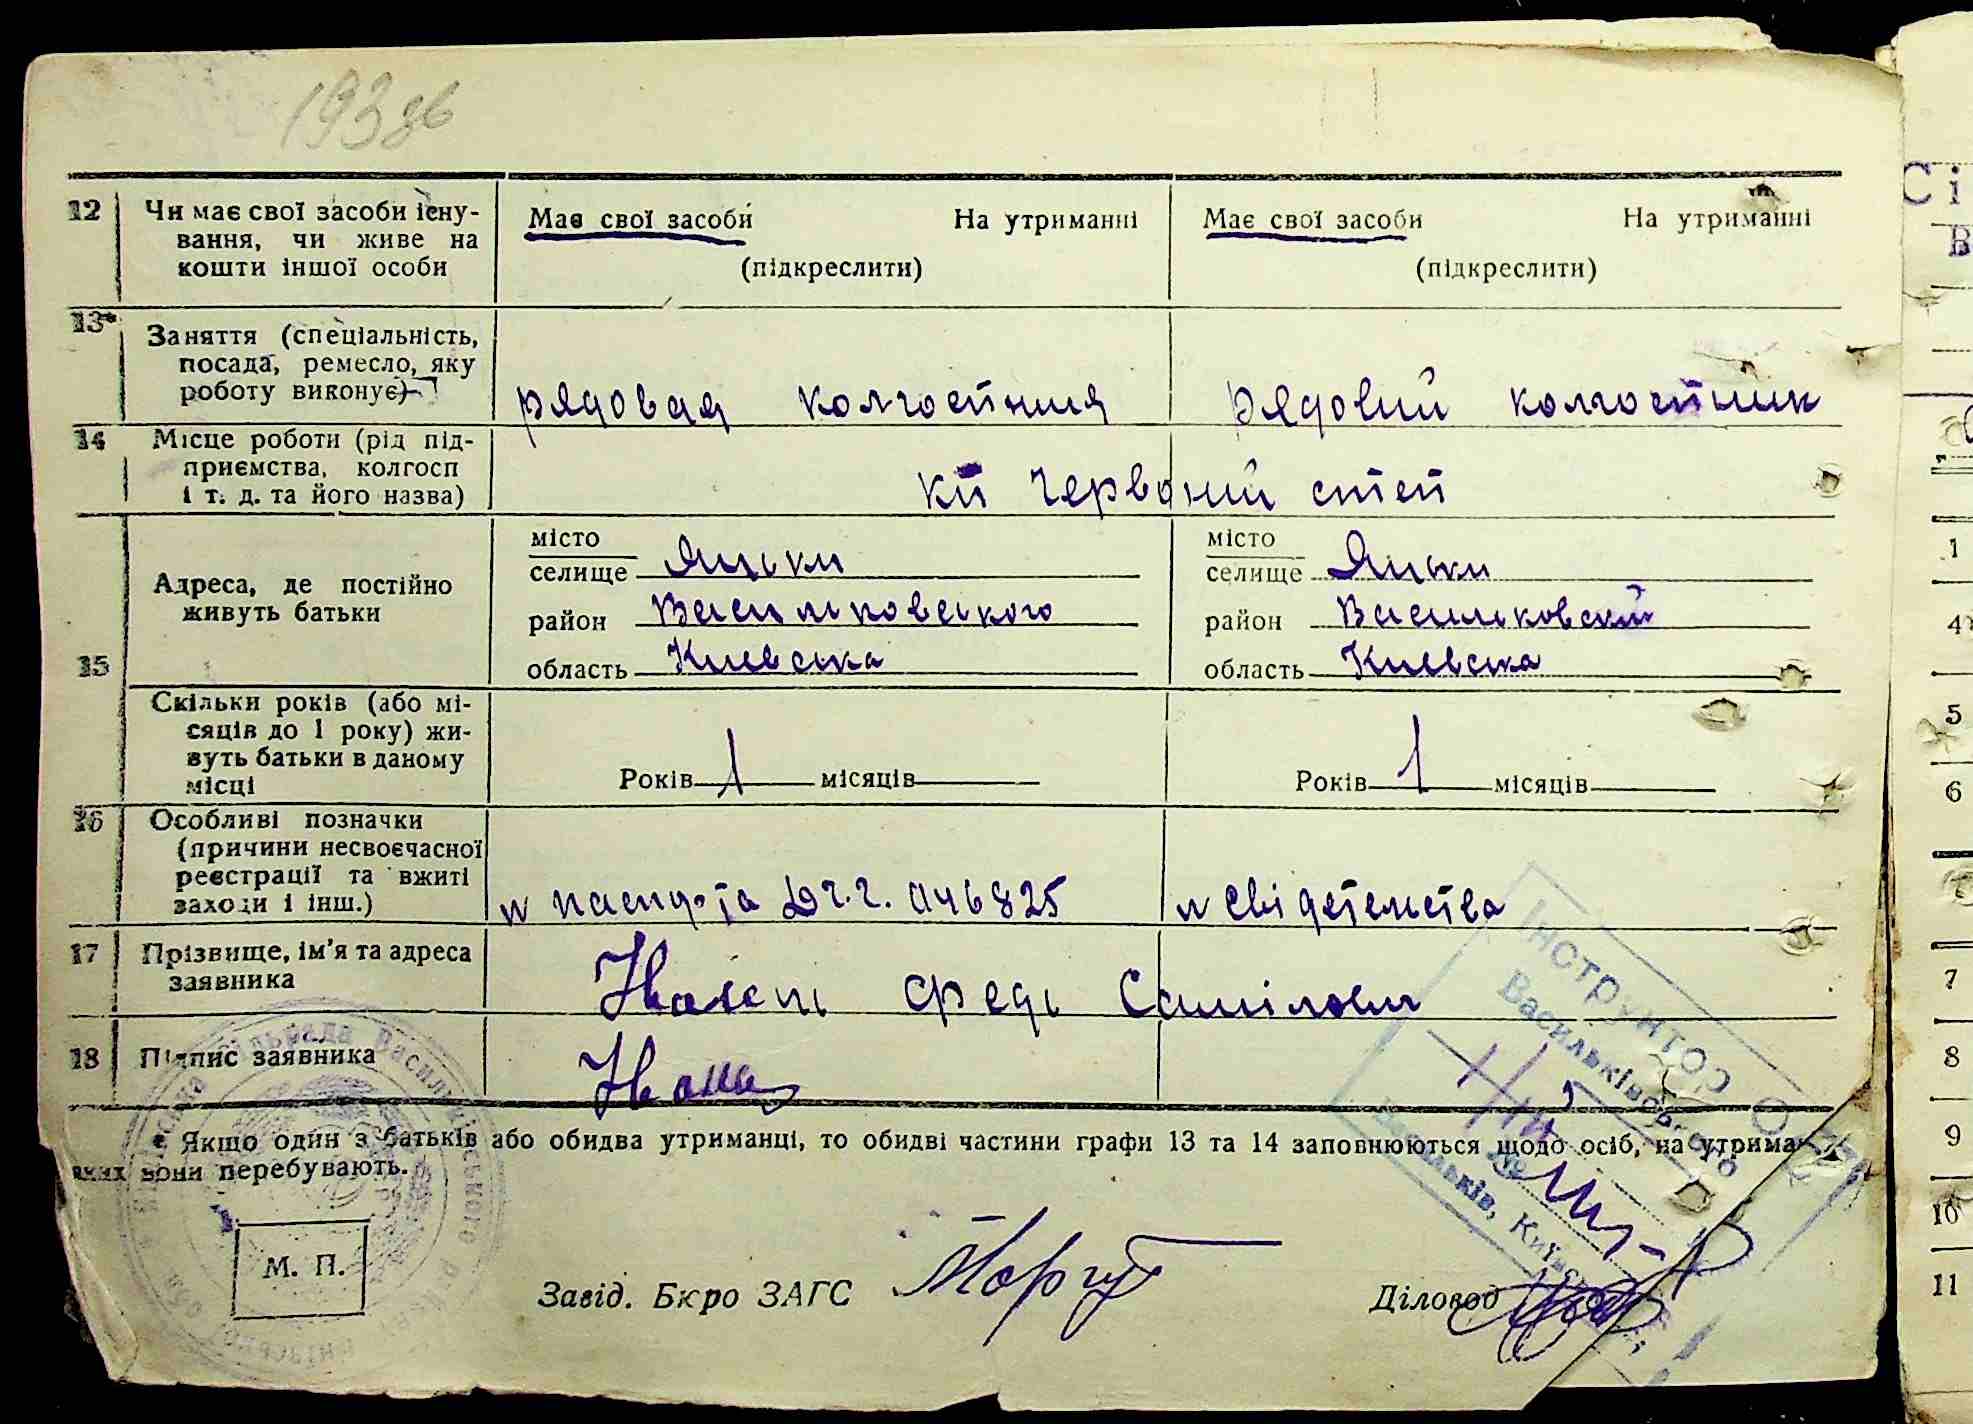 193 зв
12 Чи має свої засоби існування, чи живе на кошти іншої особи
Має свої засоби На утриманні
(підкреслити)
Має свої засоби На утриманні
(підкреслити)
13* Заняття (спеціальність, посада, ремесло, яку роботу виконує)
рядовая колгоспниця
рядовий колгоспник
14 Місце роботи (рід підприємства, колгосп і т. д. та його назва)
кп Червоний степ
15 Адреса, де постійно живуть батьки
місто
селище Яцьки
район Васильковського
область Киевська
місто
селище Яцьки
район Васильковский
область Киевська
Скільки років (або місяців до 1 року) живуть батьки в даному місці
Років 1 місяців
Років 1 місяців
16 Особливі позначки (причини несвоєчасної реєстрації та вжиті заходи і інш.)
046825
свідетельства
17 Прізвище, ім'я та адреса заявника
18 Підпис заявника
* Якщо один з батьків або обидва утриманці, то обидві частини графи 13 та 14 заповнюються щодо осіб, на утрима-
яких вони перебувають.
М. П.
Завід. Бюро ЗАГС
Діловод
Інструктор
Васильків, Київ
Сі
В
1
4
5
6
7
8
9
10
11